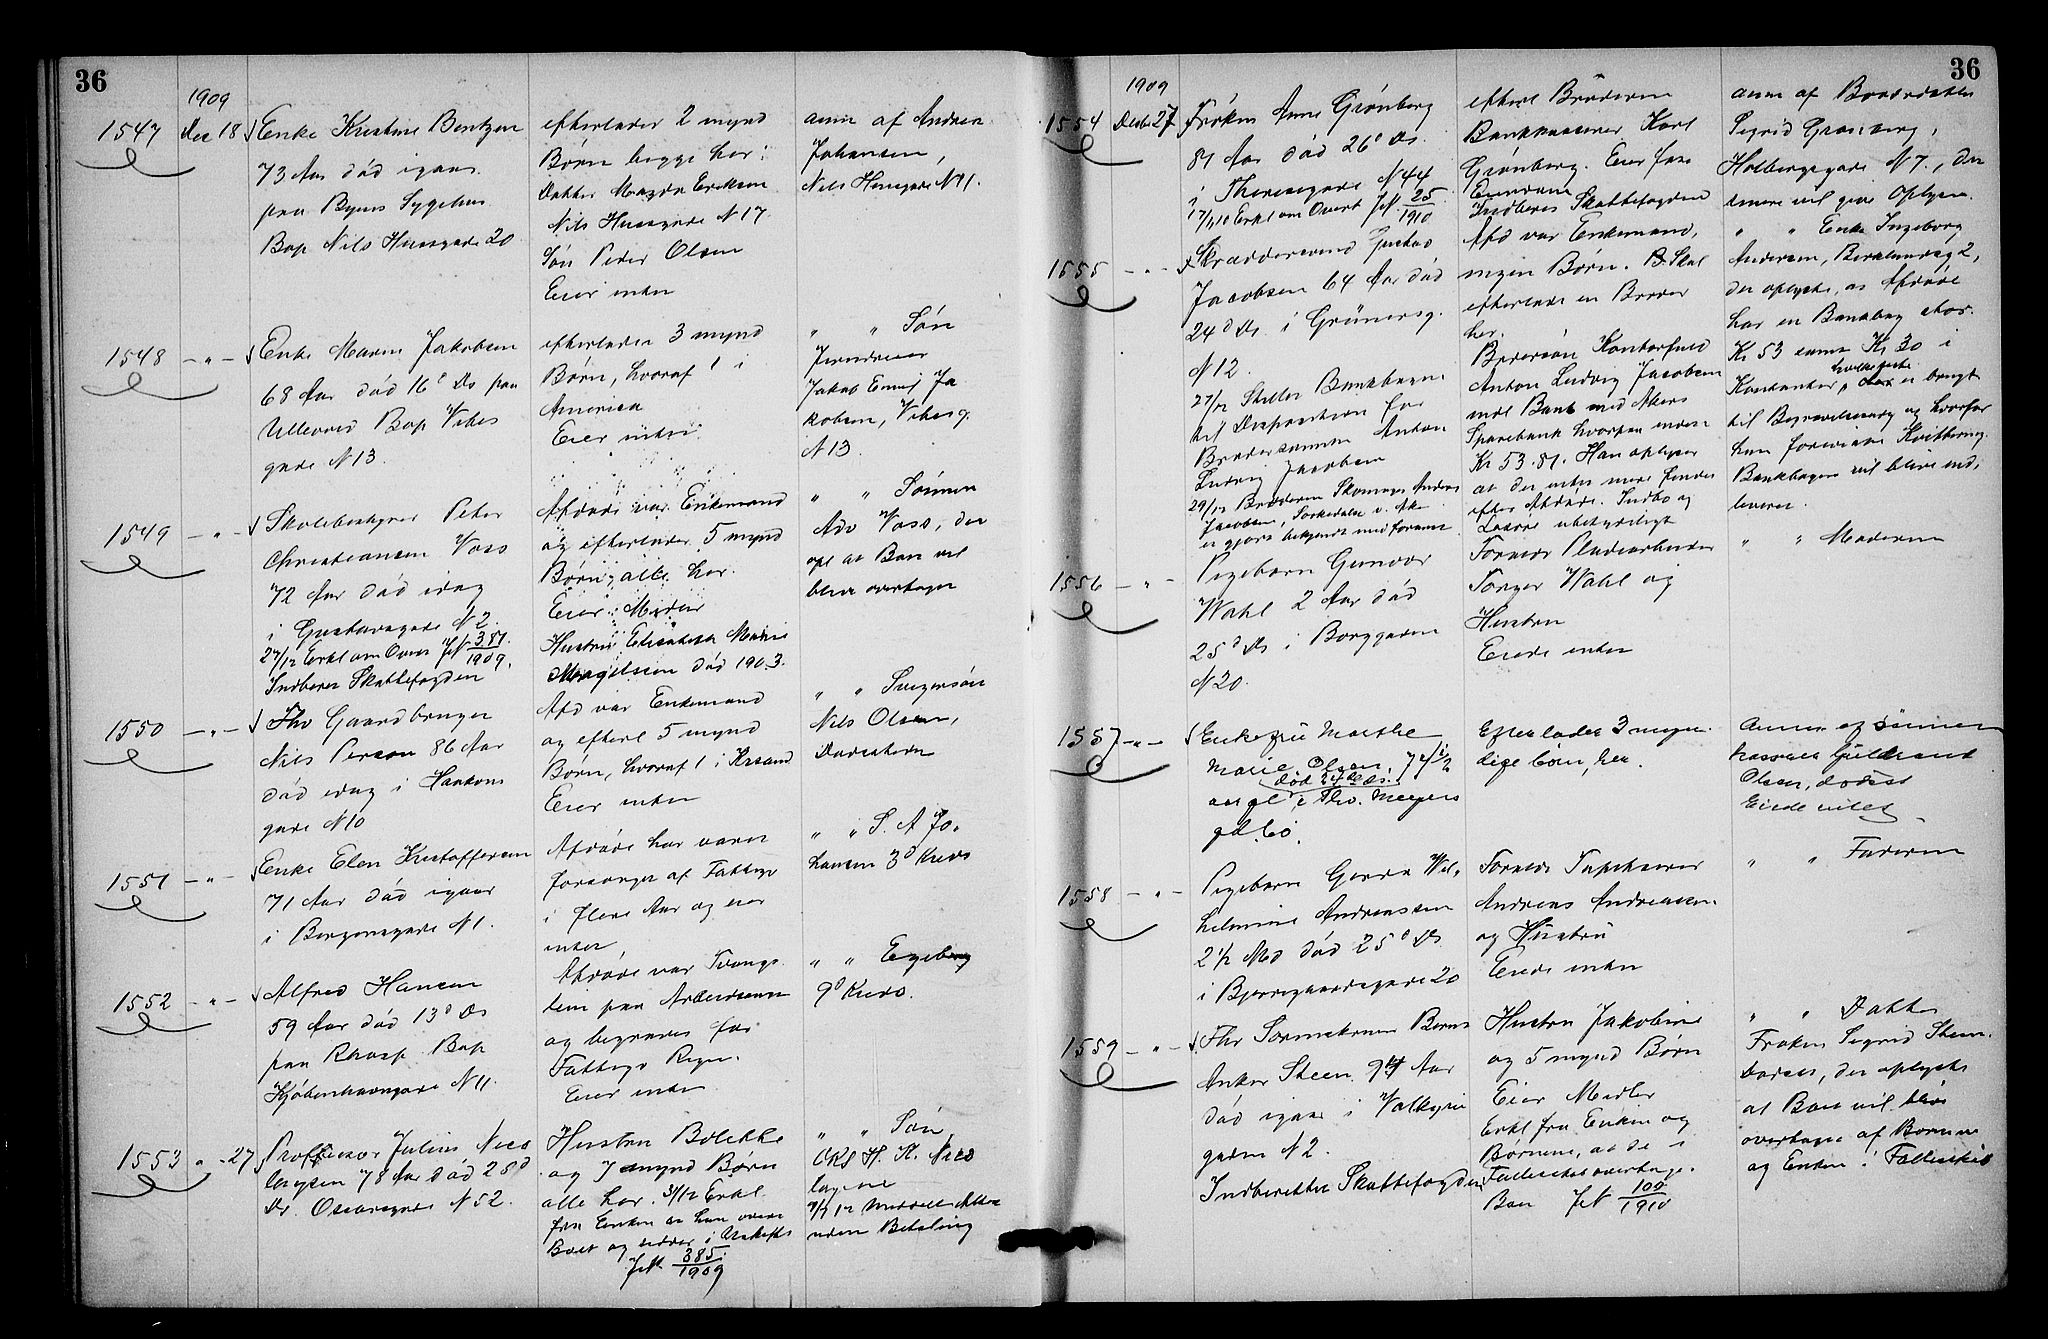 36
1909
1547 Dec 18 Enke Kristine Bentzen
73 Aar død igaar
paa Byens Sygehus
Bop Nils Huusgade 20
efterlader 2 mynd
Børn begge her:
Datter Magda Eriksen
Nils Huusgade N 17
Søn Peder Olsen
Eier intet
anm af Andrea
Johansen,
Nils Huusgade N 11.
1548 - " - Enke Maren Jakobsen
68 Aar død 16d Ds paa
Ullevaal Bop Vibes
gade N 13
efterlader 3 mynd
Børn, hvoraf 1 i
America
Eier intet
" " Søn
Jakob Ja
kobsen, Vibesg
N 13.
1549 - " - Skolebestyrer Peter
Christiansen Voss
72 Aar død idag
i Gustavsgade N 2.
27/12 Erkl om Overt JN 381/1909.
Indberes Skattefogden
Afdøde var Enkemand
og efterlader 5 mynd
Børn, alle her.
Eier Midler
Hustru Elisabeth Marie
Magelssen død 1903.
" " Sønnen
Adv Voss, der
opl at Boet vil
blive overtaget
1550 - " - Fhv Gaardbruger
Nils Person 86 Aar
død idag i Haakons
gade N 10
Afd var Enkemand
og efterl 5 mynd
Børn, hvoraf 1 i Krsand
Eier intet
" " Svigersøn
Nils Olsen,
Doresteen
1551 - " - Enke Elen Kristoffersen
71 Aar død igaar
i Bergensgade N 1.
Afdøde har været
forsørget af Fattigv
i flere Aar og eier
intet
" " S. A Jo-
hansen 3d Kreds
1552 - " - Alfred Hansen
59 Aar død 13d Ds
paa Rhosp Bop
Kjøbenhavngade N 11.
Afdøde var Tvangs
lem paa Arbeidsanst
og begraves for
Fattigv Regn.
Eier intet
" " Egeberg
9d Kreds.
1553 " - 27 Professor Julius Nico
laysen 78 Aar død 25d
Ds Oscarsgade N 52.
Hustru Bolette
og 7 mynd Børn
alle her. 31/12 Erkl.
fra Enken at hun overt
Boet og sidder i Uskifte
JN 385/1909
" " Søn
ORS H. K. Nico
laysen
meddelt Attest
uden Betaling
36
1909
1554 Decbr 27 Frøken Anne Grønberg
81 Aar død 26d Ds.
i Theresegade N 44
17/1 10 Erkl om Overt JN 25/1910
efterl Broderen
Bankkasserer Karl
Grønberg. Eier fast
Eiendom
Indberes Skattefogden
anm af Broderdatter
Sigrid Grønberg,
Holbergsgade N 7., der
senere vil give Oplysn.
1555 - " - Skræddersvend Gustav
Jacobsen 64 Aar død
24d Ds. i Grünersg.
N 12.
27/12 Stiller Bankbogen
til Disposition for
Brodersønnen Anton
Ludvig Jacobsen
29/12 Broderen Skomager Anders
Jacobsen, Sørkedalen v. Aker
er gjort bekjendt med foranst
Afd var Enkemand,
ingen Børn. Skal
efterlade en Broder
her.
Brodersøn Kontorfuld
Anton Ludvig Jacobsen
mdl Bank med Akers
Sparebank hvorpaa indest
Kr 53.81. Han oplyser
at der intet mere findes
efter Afdøde. Indbo og
Løsøre ubetydeligt
" " Enke Ingeborg
Andersen, 2,
der oplyste, at Afdøde
har en Bankbog stor
Kr 53 samt Kr 30 i
Kontanter, hvilke sidste er brugt
til Begravelsesudg og hvorfor
hun foreviste Kvittering.
Bankbogen vil blive ind,
leveret.
1556 - " - Pigebarn Gunvor
Wahl 2 Aar død
25d Ds i Borggaden
N 20.
Forældr Pladearbeider
Torger Wahl og
Hustru
Eiede intet
" " Moderen
1557 - " - Enkefru Marthe
Marie Olsen, 74 1/2
død 24de ds.
aar gl i Thv. Meyers
gd 60
Efterlader 3 myn
dige børn, her.
Anm. af sønnen
kasserer Hjelmand
Olsen,
Eiede intet
1558 - " - Pigebarn Gerda Wil,
helmine Andreassen
2 1/2 Md død 25d Ds
i Bjerregaardsgade 20
Forældr Tapetserer
Andreas Andreassen
og Hustru
Eiede intet
" " Faderen
1559 - " - Fhv Bernt
Anker Steen 94 Aar
død igaar i Valkyrie
gaden N 2.
Indberettes Skattefogden
Hustru Jakobine
og 5 mynd Børn
Eier Midler
Erkl fra Enken og
Børnene, at de i
Fællesskab overtager
Boet JN 100/1910
" " Datter
Frøken Sigrid Steen
der oplyste
at Boet vil blive
overtaget af Børnene
og Enken i Fællesskab